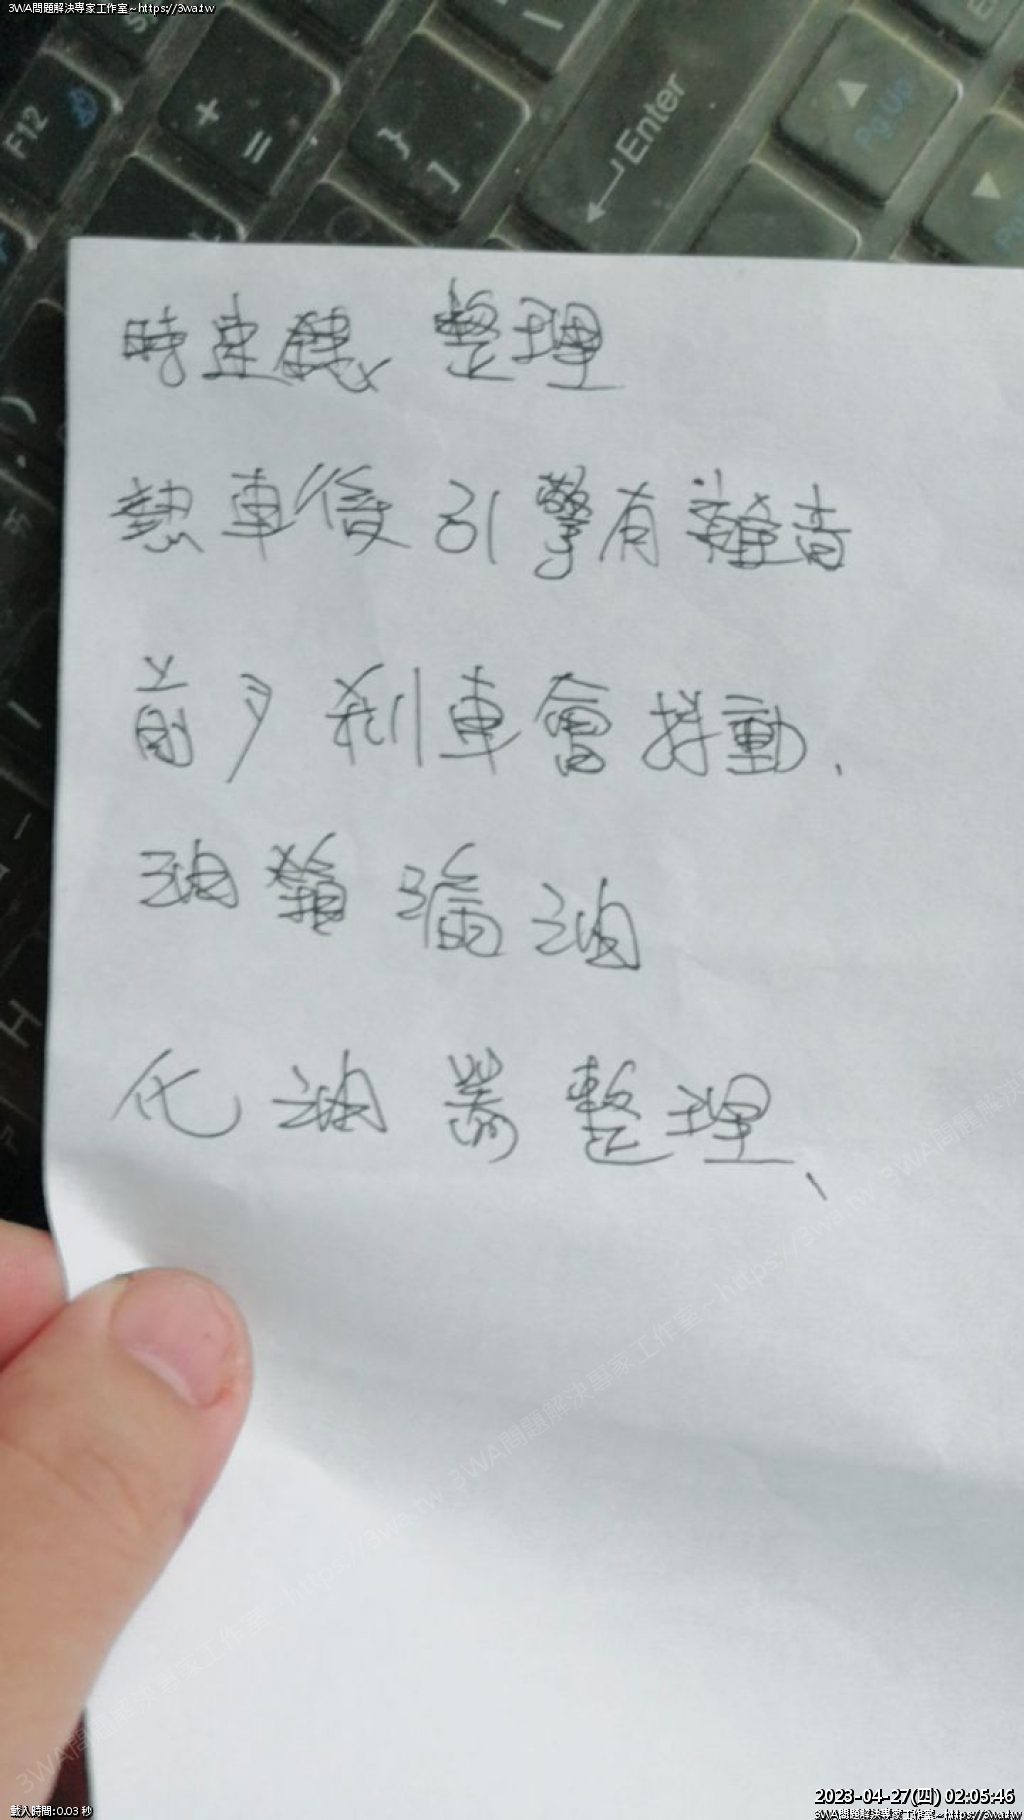 3WA問題解決專家工作室~https://3wa.tw
F12
+
=
}
]
Enter
PgUp
時速錶 整理
熱車後引擎有雜音
前 剎車會抖動.
油箱漏油
化油器整理、
H
3WA問題解決專家工作室~https://3wa.tw 3WA問題解決專家工作室~https://3wa.tw 3WA問題解決
載入時間:0.03 秒
2023-04-27(四) 02:05:46
3WA問題解決專家工作室~https://3wa.tw